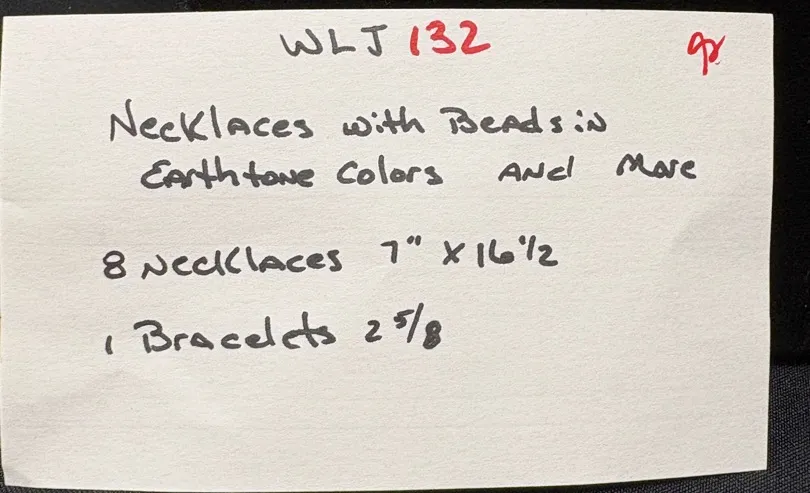 WLJ 132
Necklaces with Beads in
Earthtone Colors And More
8 Necklaces 7" X 16 1/2
1 Bracelets 2 5/8